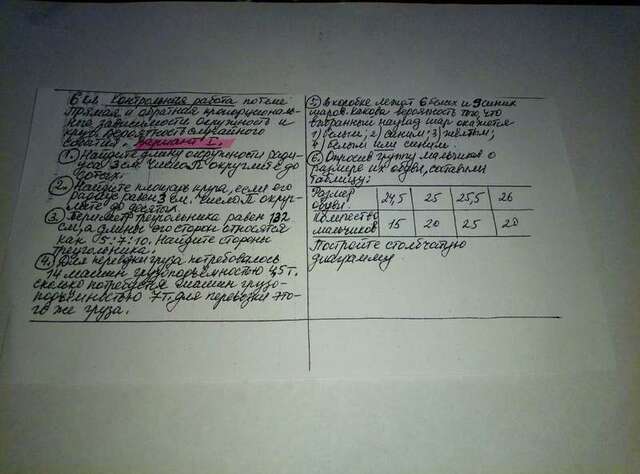 6 кл. Контрольная работа по теме
Прямая и обратная пропорциональ-
ная зависимости. Окружность и
круг. Вероятность случайного
события. Вариант I.
1. Найдите длину окружности ради-
уса 3 см. Число П округлите до
сотых.
2. Найдите площадь круга, если его
радиус равен 3 см. Число П окру-
глите до десятых.
3. Периметр треугольника равен 132
см, а длины его сторон относятся
как 5:7:10. Найдите стороны
треугольника.
4. Для перевозки груза потребовалось
14 машин грузоподъёмностью 4,5 т.
сколько потребуется машин грузо-
подъёмностью 7 т. для перевозки это-
го же груза.
5. В коробке лежат 6 белых и 9 синих
шаров. какова вероятность того, что
выбранный наугад шар окажется
1) белым; 2) синим; 3) жёлтым;
4) белым или синим.
6. Опросив группу мальчиков о
размере их обуви, составили
таблицу:
Размер обуви 24,5 25 25,5 26
Количество мальчиков 15 20 25 20
Постройте столбчатую
диаграмму